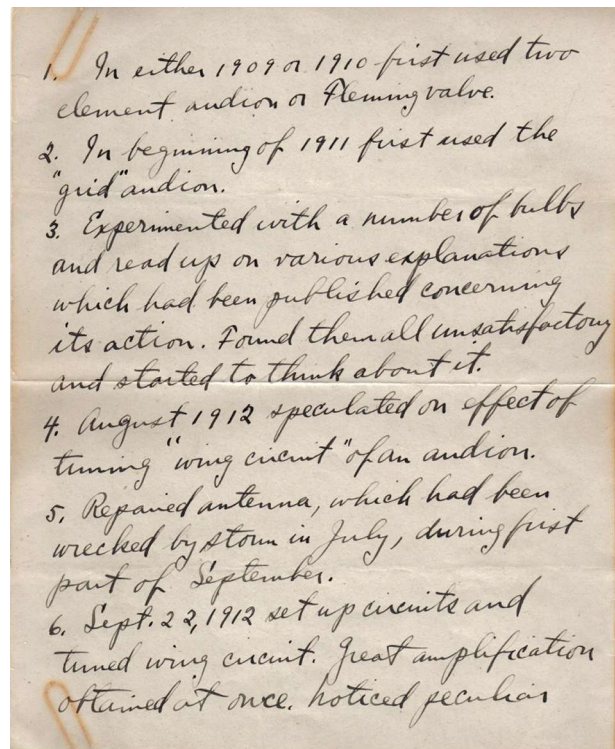 1. In either 1909 or 1910 first used two
element audion or Fleming valve.
2. In beginning of 1911 first used the
"grid" audion.
3. Experimented with a number of bulbs
and read up on various explanations
which had been published concerning
its action. Found them all unsatisfactory
and started to think about it.
4. August 1912 speculated on effect of
tuning "wing circuit" of an audion.
5. Repaired antenna, which had been
wrecked by storm in July, during first
part of September.
6. Sept. 22, 1912 set up circuits and
tuned wing circuit. Great amplification
obtained at once. Noticed peculiar